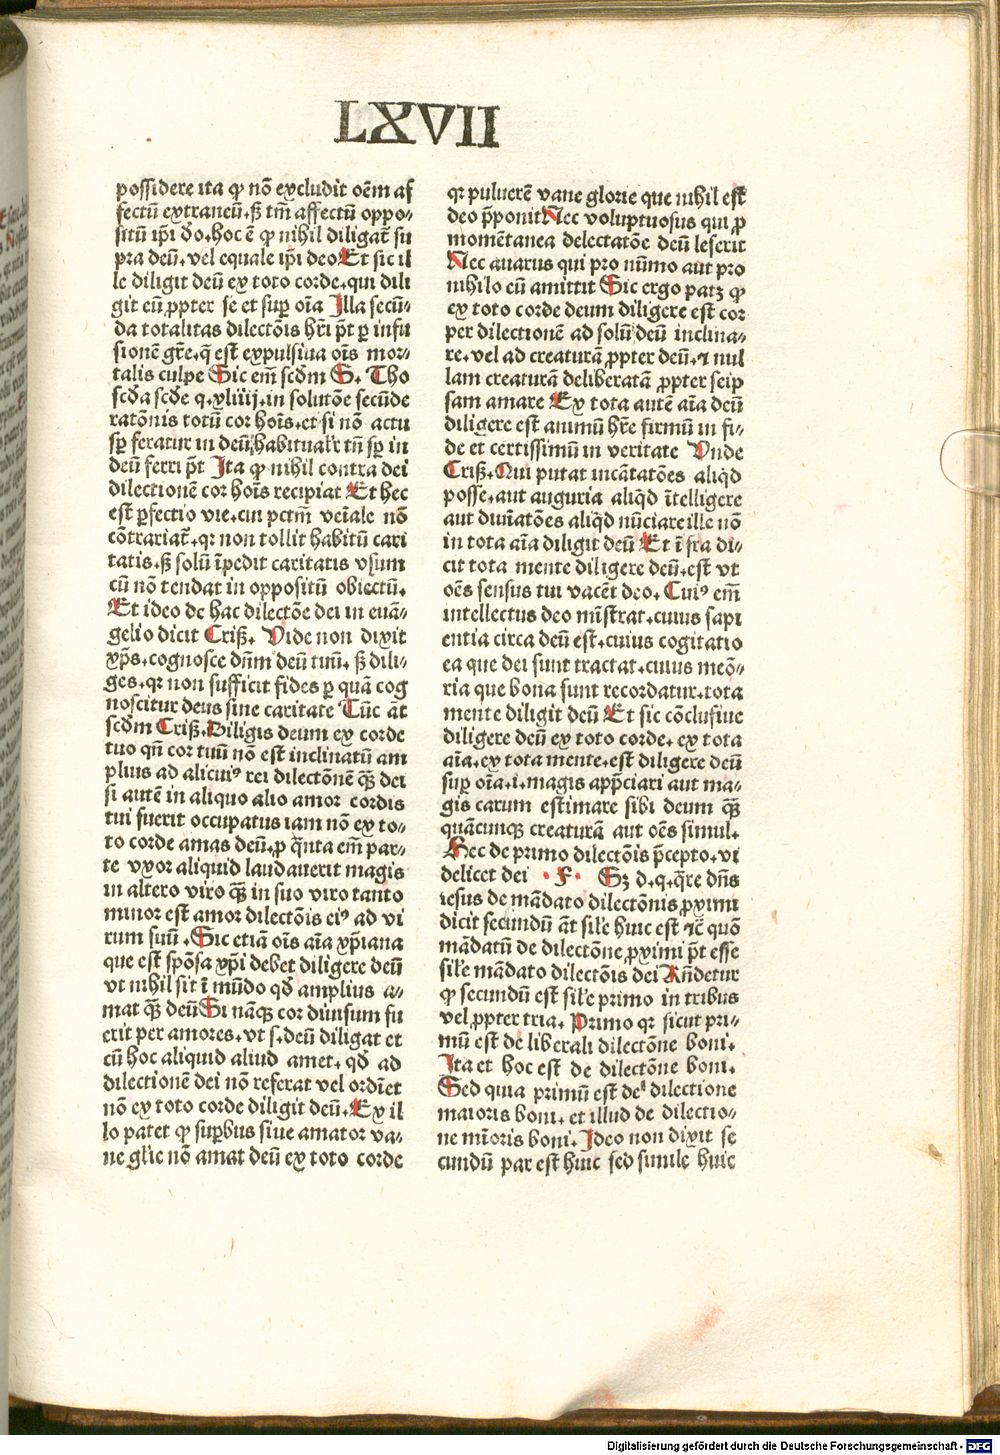 LXVII
possidere ita ꝙ nō excludit oēm af
fectū extraneū. sꝫ tm̄ affectū oppo⸗
sitū ip̄i do. hoc ē ꝙ nihil diligat̄ su
pra deū. vel equale ip̄i deo Et sic il
le diligit deū ex toto corde. qui dili
git eū ꝓpter se et suꝑ oīa Illa secū⸗
da totalitas dilectōis hr̄i pt̄ ꝑ infu
sionē gr̄e. q̄ est expulsiua oīs mor⸗
talis culpe Sic em̄ scd̄m S. Tho
scd̄a scd̄e q. xliiij. in solutōe secūde
ratōnis totū cor hoīs. et si nō actu
sꝑ feratur in deū habitualr̄ tn̄ sꝑ in
deū ferri pt̄ Ita ꝙ nihil contra dei
dilectionē cor hoīs recipiat Et hec
est ꝑfectio vie. cui pctm̄ veīale nō
cōtrariat̄. qꝛ non tollit habitū cari
tatis. sꝫ solū īpedit caritatis vsum
cū nō tendat in oppositū obiectū.
Et ideo de hac dilectōe dei in euā⸗
gelio dicit Criß. Vide non dixit
xp̄s. cognosce dn̄m deū tuū. sꝫ dili⸗
ges. qꝛ non sufficit fides ꝑ quā cog
noscitur deus sine caritate Tūc āt
scd̄m Criß. Diligis deum ex corde
tuo qn̄ cor tuū nō est inclinatū am
plius ad alicuiꝰ rei dilectōnē q̄ꝫ dei
si autē in aliquo alio amor cordis
tui fuerit occupatus iam nō ex to⸗
to corde amas deū. ꝓ q̄nta em̄ par⸗
te vxor aliquid laudauerit magis
in altero viro q̄ꝫ in suo viro tanto
minor est amor dilectōis eiꝰ ad vi
rum suū. Sic etiā oīs aīa xp̄iana
que est spōsa xp̄i debet diligere deū
vt nihil sit ī mūdo qd̄ amplius a⸗
mat q̄ꝫ deū Si nāqꝫ cor diuisum fu
erit per amores. vt s. deū diligat et
cū hoc aliquid aliud amet. qd̄ ad
dilectionē dei nō referat vel ordīet
nō ex toto corde diligit deū. Ex il
lo patet ꝙ suꝑbus siue amator va⸗
ne gl̄ie nō amat deū ex toto corde
qꝛ puluerē vane glorie que nihil est
deo p̄ponit Nec voluptuosus qui ꝓ
momētanea delectatōe deū leserit
Nec auarus qui pro nūmo aut pro
nihilo eū amittit Sic ergo patꝫ ꝙ
ex toto corde deum diligere est cor
per dilectionē ad solū deū inclina⸗
re. vel ad creaturā ꝓpter deū. ⁊ nul
lam creaturā deliberatā ꝓpter seip
sam amare Ex tota autē aīa deū
diligere est animū hr̄e firmū in fi⸗
de et certissimū in veritate Vnde
Criß. Qui putat incātatōes aliqd̄
posse. aut auguria aliqd̄ ītelligere
aut diuīatōes aliqd̄ nūciare ille nō
in tota aīa diligit deū Et īfra di⸗
cit tota mente diligere deū. est vt
oēs sensus tui vacēt deo. Cuiꝰ em̄
intellectus deo mīstrat. cuius sapi
entia circa deū est. cuius cogitatio
ea que dei sunt tractat. cuius meō⸗
ria que bona sunt recordatur. tota
mente diligit deū Et sic cōclusiue
diligere deū ex toto corde. ex tota
aīa. ex tota mente. est diligere deū
suꝑ oīa. i. magis app̄ciari aut ma⸗
gis carum estimare sibi deum q̄ꝫ
quācunqꝫ creaturā aut oēs simul.
Hec de primo dilectōis p̄cepto. vi
delicet dei · F · Sꝫ d. q. q̄re dn̄s
iesus de mādato dilectōnis ꝓximi
dicit secundū āt sil̄e huic est ⁊c̄ quō
mādatū de dilectōne ꝓximi pt̄ esse
sil̄e mādato dilectōis dei Rn̄detur
ꝙ secundū est sil̄e primo in tribus
vel ꝓpter tria. Primo qꝛ sicut pri⸗
mū est de liberali dilectōne boni.
Ita et hoc est de dilectōne boni.
Sed quia primū est de dilectione
maioris boni. et illud de dilectio⸗
ne mīoris boni. Ideo non dixit se
cundū par est huic sed simile huic
Digitalisierung gefördert durch die Deutsche Forschungsgemeinschaft - DFG